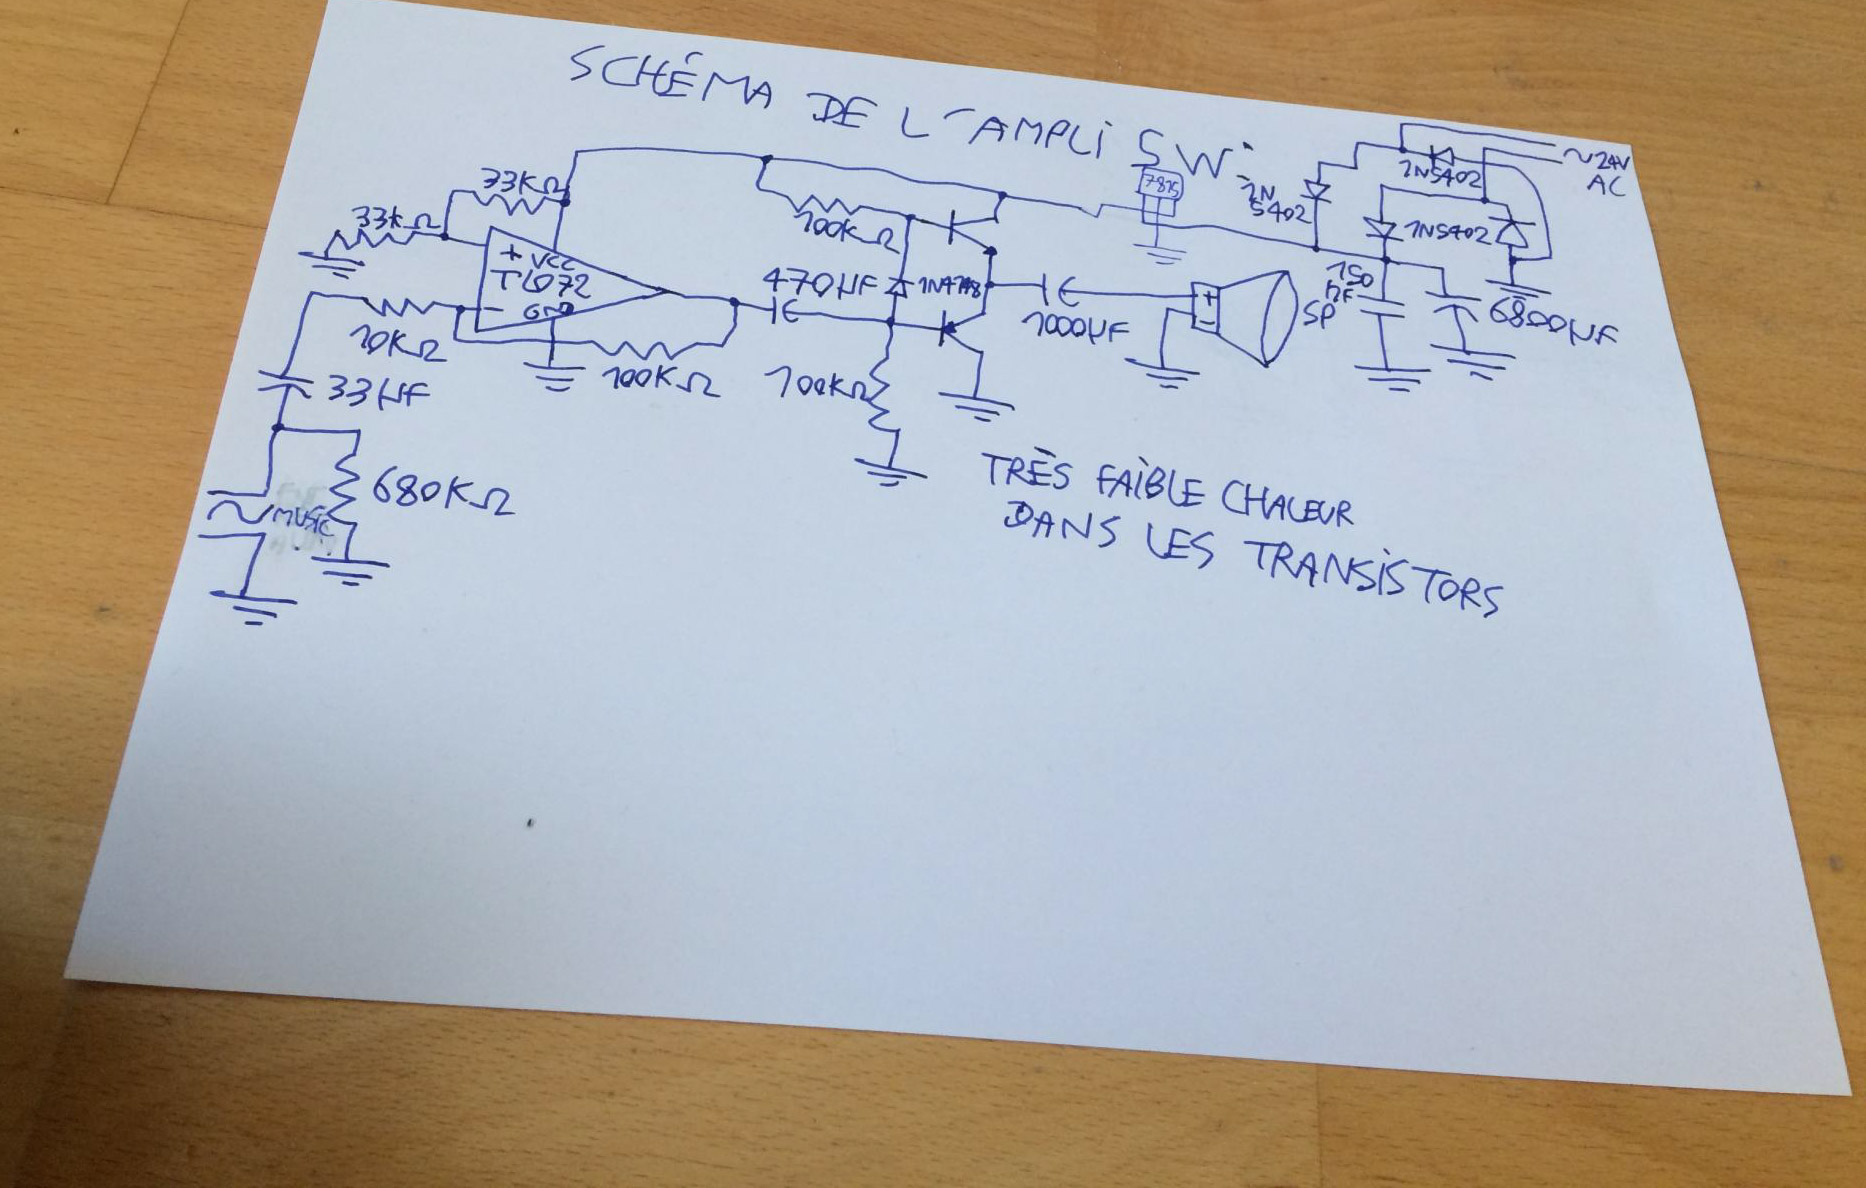 SCHÉMA DE L'AMPLI 5W:
~24V
AC
1N5402
1N
5402
1N5402
7815
33KΩ
33KΩ
+ VCC
TL072
- GND
100KΩ
470µF
1N4148
1000µF
+
-
SP
150
nF
6800µF
10KΩ
100KΩ
100KΩ
33µF
680KΩ
~MUSIC
TRÈS FAIBLE CHALEUR
DANS LES TRANSISTORS